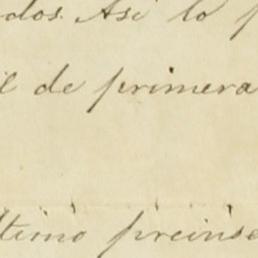 dos. Así lo p
l de primera
ltimo preinse